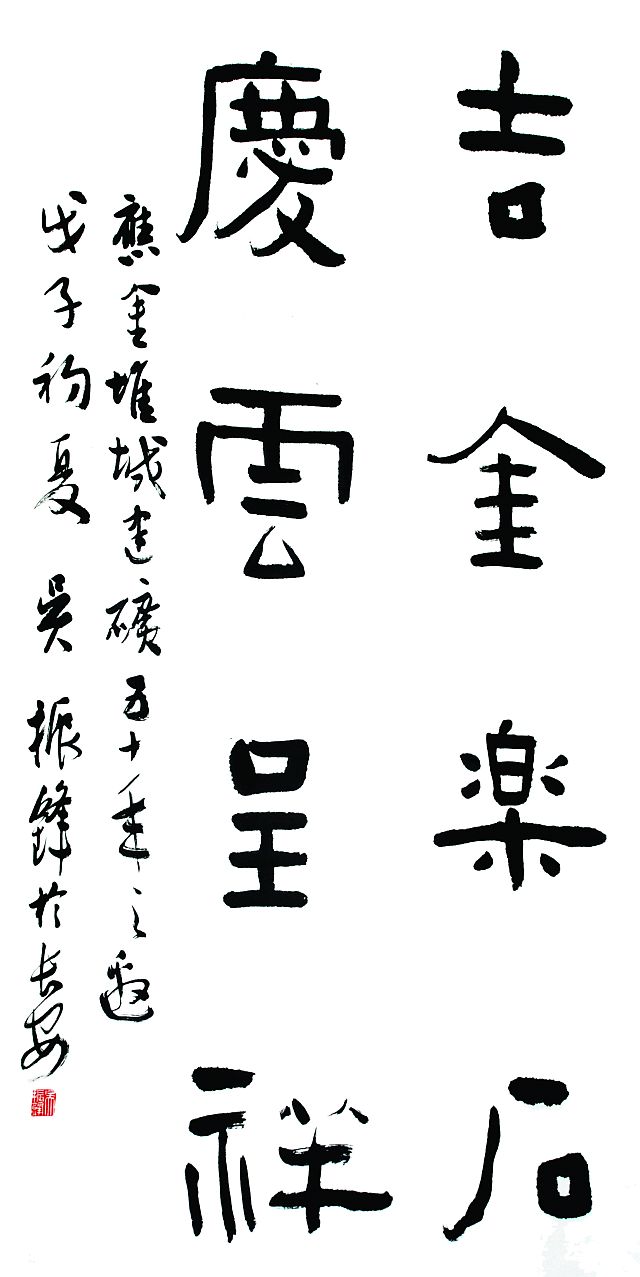 吉金楽石
慶雲呈祥
應金堆城建礦五十年之邀
戊子初夏 吳振鋒於长安